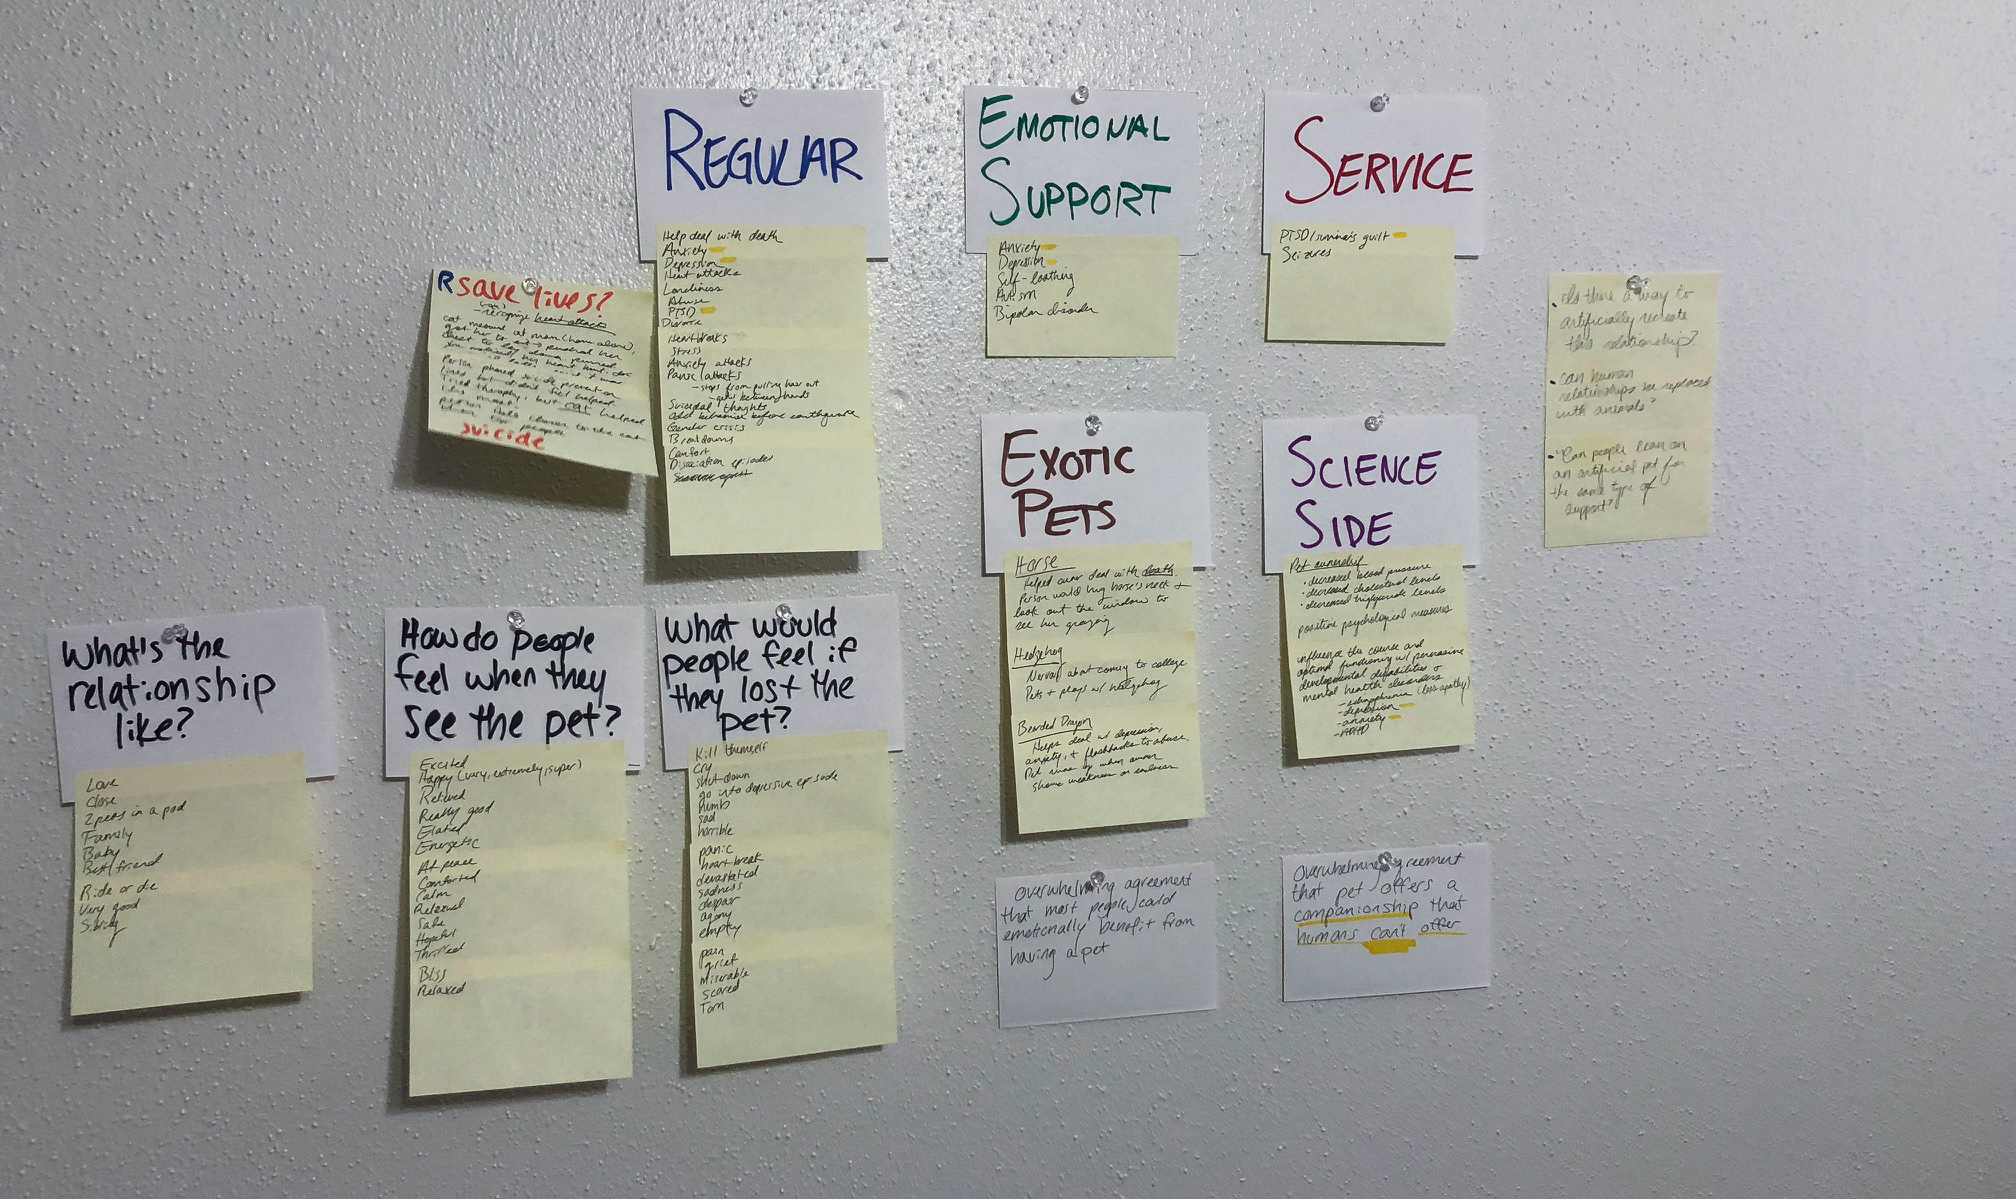 REGULAR
Help deal with death
Anxiety
Depression
Heart attacks
Loneliness
Abuse
PTSD
Divorce
Heartbreaks
Stress
Anxiety attacks
Panic attacks
- stops from pulling hair out
- gets between hands
Suicidal thoghts
odd behavior before earthquake
Gender crisis
Breakdowns
Comfort
Dissociation episodes
EMOTIONAL
SUPPORT
Anxiety
Depression
Self-loathing
Autism
Bipolar disorder
SERVICE
PTSD/survivor's guilt
Seizures
R save lives?
- recognize heart attacks
cat meowed at mom (home alone),
Person phoned suicide prevention
lines but didn't feel helped.
Tried therapy, but cat helped
the most.
person feels closer to the cat
than to people
suicide
• Is there a way to
artificially recreate
this relationship?
• can human
relationships be replaced
with animals?
• Can people lean on
an artificial pet for
the same type of
support?
EXOTIC
PETS
Horse
Helped owner deal with death
Person would hug horse's neck +
look out the window to
see her grazing
Hedgehog
Nervous about coming to college
Pets + plays w/ hedgehog
Bearded Dragon
Helps deal w/ depression,
anxiety, + flashbacks to abuse
Pet runs up when owner
shows weakness or sadness
SCIENCE
SIDE
Pet ownership
• decreased blood pressure
• decreased cholesterol levels
• decreased triglyceride levels
positive psychological measures
influence the course and
optimal functioning w/ pervasive
developmental disabilities +
mental health disorders
- schizophrenia (less apathy)
- depression
- anxiety
- ADHD
What's the
relationship
like?
Love
Close
2 peas in a pod
Family
Baby
Best friend
Ride or die
Very good
Sibling
How do people
feel when they
see the pet?
Excited
Happy (very, extremely, super)
Relieved
Really good
Elated
Energetic
At peace
Comforted
Calm
Relaxed
Safe
Hopeful
Thrilled
Bliss
Relaxed
What would
people feel if
they lost the
pet?
Kill themself
Cry
shut down
go into depressive episode
numb
sad
horrible
panic
heartbreak
devastated
sadness
despair
agony
empty
pain
grief
miserable
scared
Torn
overwhelming agreement
that most people could
emotionally benefit from
having a pet
overwhelming agreement
that pet offers a
companionship that
humans can't offer